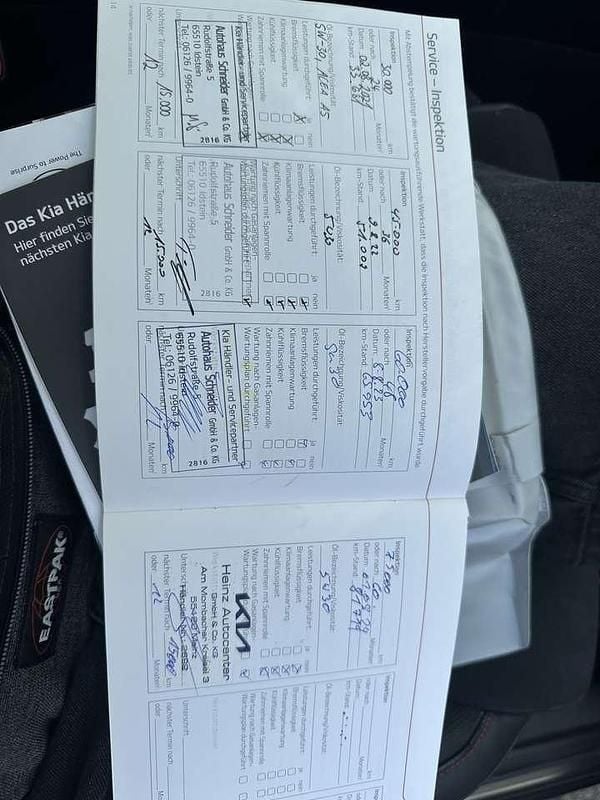 Service – Inspektion
Mit Abstempelung bestätigt die wartungsausführende Werkstatt, dass die Inspektion nach Herstellervorgabe durchgeführt wurde
Inspektion 30.000 km
oder nach 24 Monaten
Datum:
km-Stand:
Öl-Bezeichnung/Viskosität:
Leistungen durchgeführt: ja nein
Bremsflüssigkeit
Klimaanlagenwartung
Kühlflüssigkeit
Zahnriemen mit Spannrolle
Kia Händler- und Servicepartner
Autohaus Schneider GmbH & Co. KG
Rudolfstraße 5
65510 Idstein
Tel.: 06126 / 9964-0
2816
nächster Termin nach 15.000 km
oder 12 Monaten
Inspektion 45.000 km
oder nach 36 Monaten
Datum: 9.8.22
km-Stand: 51.009
Öl-Bezeichnung/Viskosität:
5W30
Leistungen durchgeführt: ja nein
Bremsflüssigkeit
Klimaanlagenwartung
Kühlflüssigkeit
Zahnriemen mit Spannrolle
Wartung nach Gasanlagen-
Wartungsplan durchgeführt
Autohaus Schneider GmbH & Co. KG
Rudolfstraße 5
65510 Idstein
Tel.: 06126 / 9964-0
2816
Unterschrift
nächster Termin nach 15.000 km
oder 12 Monaten
Inspektion 60.000 km
oder nach 48 Monaten
Datum:
km-Stand: 65.953
Öl-Bezeichnung/Viskosität:
5W30
Leistungen durchgeführt: ja nein
Bremsflüssigkeit
Klimaanlagenwartung
Kühlflüssigkeit
Zahnriemen mit Spannrolle
Wartung nach Gasanlagen-
Wartungsplan durchgeführt
Kia Händler- und Servicepartner
Autohaus Schneider GmbH & Co. KG
Rudolfstraße 5
65510 Idstein
Tel.: 06126 / 9964-0
2816
nächster Termin nach 15.000 km
oder 12 Monaten
Inspektion 75000 km
oder nach 60 Monaten
Datum:
km-Stand:
Öl-Bezeichnung/Viskosität:
5W30
Leistungen durchgeführt: ja nein
Bremsflüssigkeit
Klimaanlagenwartung
Kühlflüssigkeit
Zahnriemen mit Spannrolle
Wartung nach Gasanlagen-
Wartungsplan
KIA
Heinz Autocenter
GmbH & Co. KG
Am Mombacher Kreisel 3
55120 Mainz
nächster Termin nach 15000 km
oder 12 Monaten
Inspektion km
oder nach Monaten
Datum:
km-Stand:
Öl-Bezeichnung/Viskosität:
Leistungen durchgeführt: ja nein
Bremsflüssigkeit
Klimaanlagenwartung
Kühlflüssigkeit
Zahnriemen mit Spannrolle
Wartung nach Gasanlagen-
Wartungsplan durchgeführt
Unterschrift
nächster Termin nach km
oder Monaten
14
The Power to Surprise
Das Kia Hän
Hier finden Sie
nächsten Kia
EASTPAK